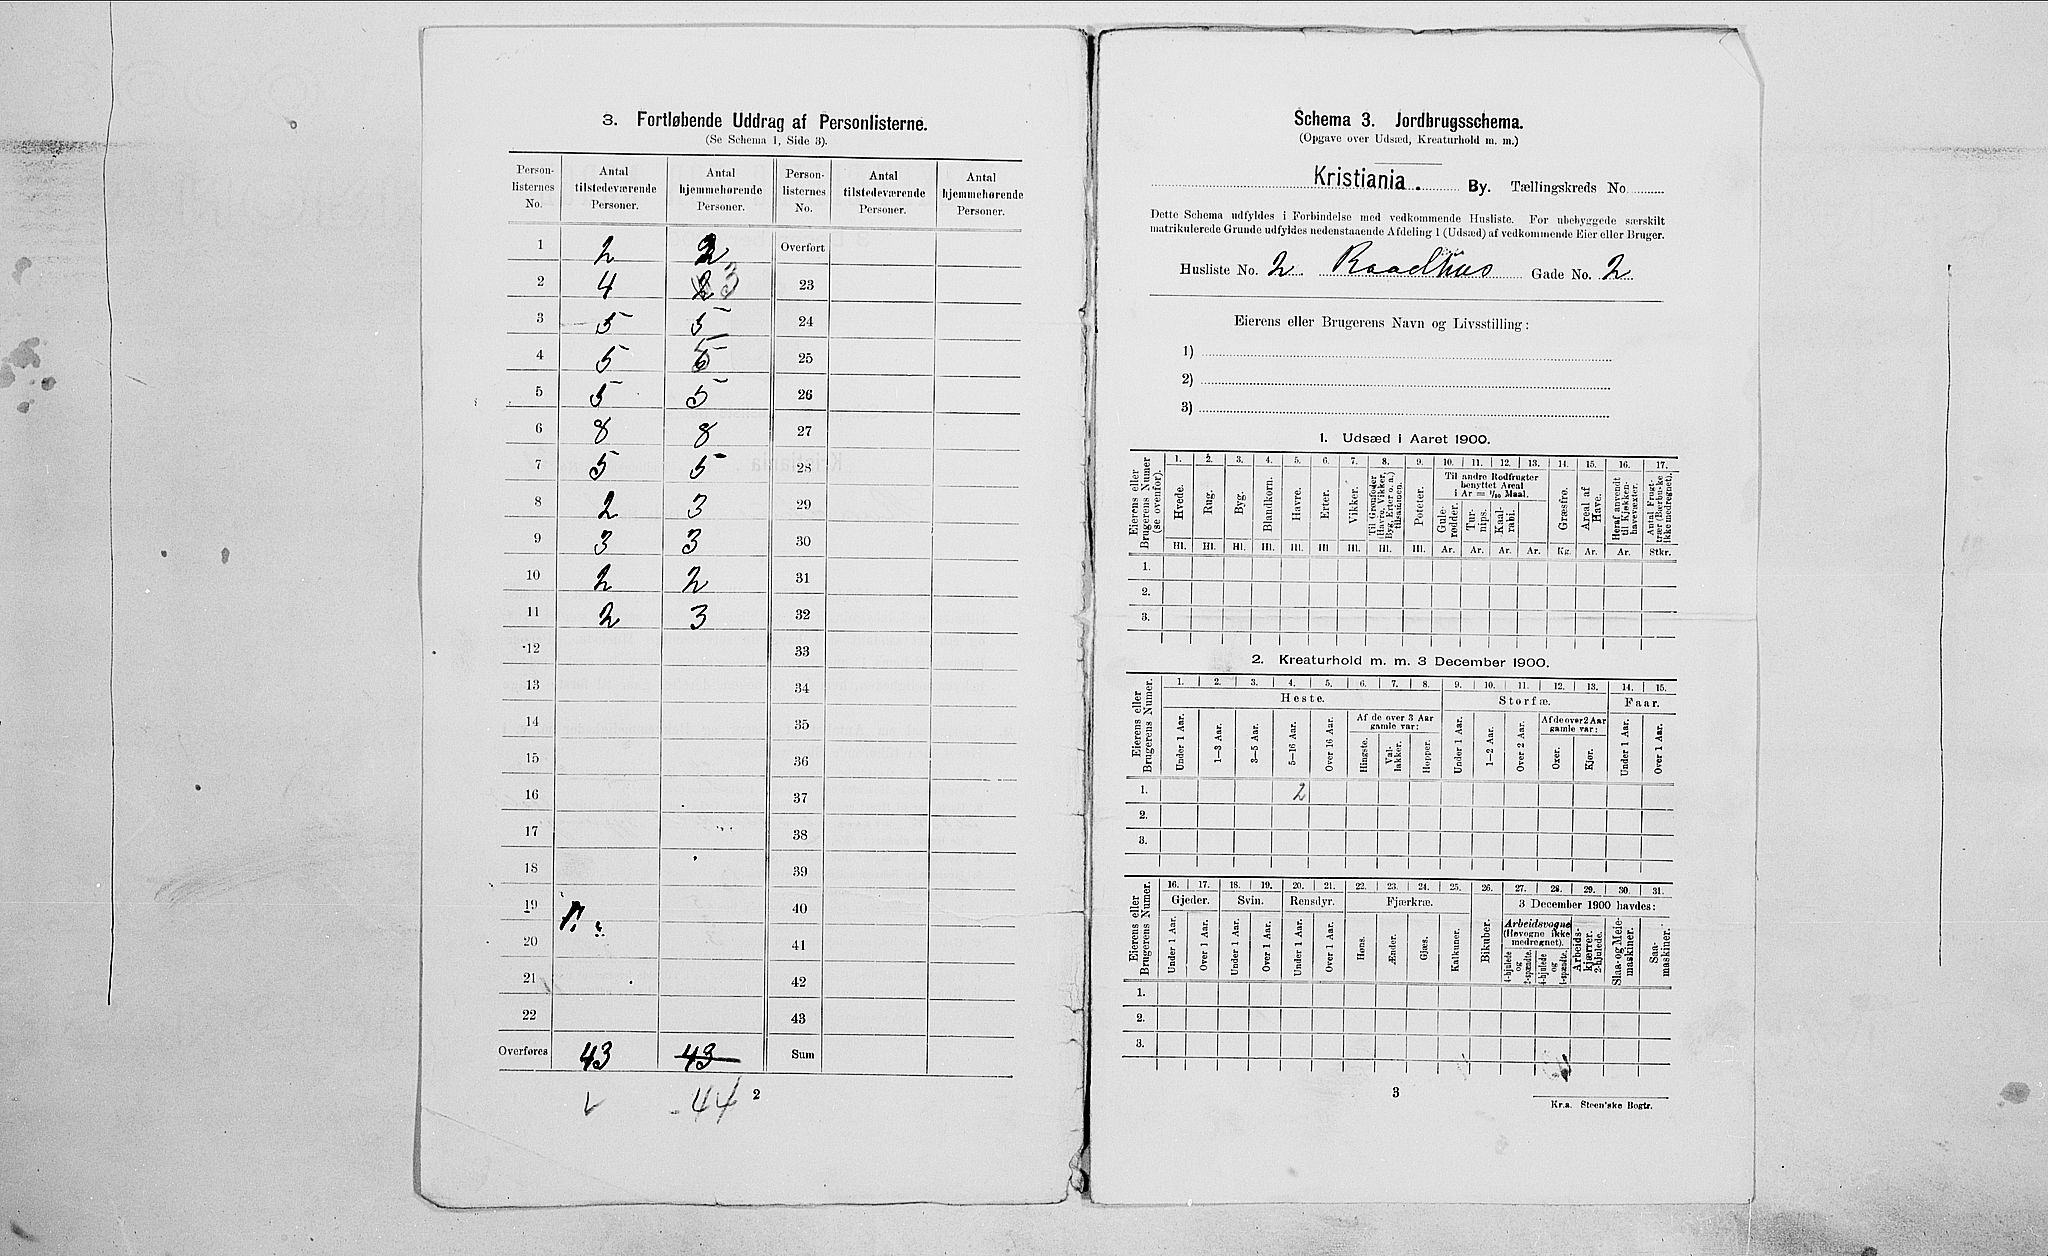 3. Fortløbende Uddrag af Personlisterne.
(Se Schema 1, Side 3).
Person-listernes No. | Antal tilstedeværende Personer. | Antal hjemmehørende Personer. | Person-listernes No. | Antal tilstedeværende Personer. | Antal hjemmehørende Personer.
1 2 2 Overført
2 4 3 23
3 5 5 24
4 5 5 25
5 5 5 26
6 8 8 27
7 5 5 28
8 2 3 29
9 3 3 30
10 2 2 31
11 2 3 32
12 33
13 34
14 35
15 36
16 37
17 38
18 39
19 40
20 41
21 42
22 43
Overføres 43 43 Sum
44
2
Schema 3. Jordbrugsschema.
(Opgave over Udsæd, Kreaturhold m. m.)
Kristiania. By. Tællingskreds No
Dette Schema udfyldes i Forbindelse med vedkommende Husliste. For ubebyggede særskilt
matrikulerede Grunde udfyldes nedenstaaende Afdeling 1 (Udsæd) af vedkommende Eier eller Bruger.
Husliste No. 2 Raadhus Gade No. 2
Eierens eller Brugerens Navn og Livsstilling:
1)
2)
3)
1. Udsæd i Aaret 1900.
Eierens eller Brugerens Numer (se ovenfor).
1. 2. 3. 4. 5. 6. 7. 8. 9. 10. 11. 12. 13. 14. 15. 16. 17.
Hvede. Rug. Byg. Blandkorn. Havre. Erter. Vikker. Til Grønfoder (Havre, Vikker, Byg, Erter o. a.) tilsaaningen. Poteter.
Til andre Rodfrugter benyttet Areal i Ar = 1/10 Maal.
Gule-rødder. Tur-nips. Kaal-rabi. Græsfrø. Areal af Have. Heraf anvendt til Kjøkken-havevæxter. Antal Frugt-træer (Bærbuske ikke medregnet).
Hl. Hl. Hl. Hl. Hl. Hl. Hl. Hl. Hl. Ar. Ar. Ar. Ar. Kg. Ar. Ar. Stkr.
1.
2.
3.
2. Kreaturhold m. m. 3 December 1900.
Eierens eller Brugerens Numer.
1. 2. 3. 4. 5. 6. 7. 8. 9. 10. 11. 12. 13. 14. 15.
Heste. Storfæ. Faar.
Af de over 3 Aar gamle var: Af de over 2 Aar gamle var:
Under 1 Aar. 1—3 Aar. 3—5 Aar. 5—16 Aar. Over 16 Aar. Hingste. Val-lakker. Hopper. Under 1 Aar. 1—2 Aar. Over 2 Aar. Oxer. Kjør. Under 1 Aar. Over 1 Aar.
1. 2
2.
3.
Eierens eller Brugerens Numer.
16. 17. 18. 19. 20. 21. 22. 23. 24. 25. 26. 27. 28. 29. 30. 31.
Gjeder. Svin. Rensdyr. Fjærkræ. 3 December 1900 havdes:
Under 1 Aar. Over 1 Aar. Under 1 Aar. Over 1 Aar. Under 1 Aar. Over 1 Aar. Høns. Ænder. Gjæs. Kalkuner. Bikuber.
Arbeidsvogne (Høvogne ikke medregnet).
4-hjulede og 2-spændte. 4-hjulede og 1-spændte. Arbeids-kjærrer. 2-hjulede. Slaa- og Meie-maskiner. Saa-maskiner.
1.
2.
3.
3
Kr.a. Steen'ske Bogtr.